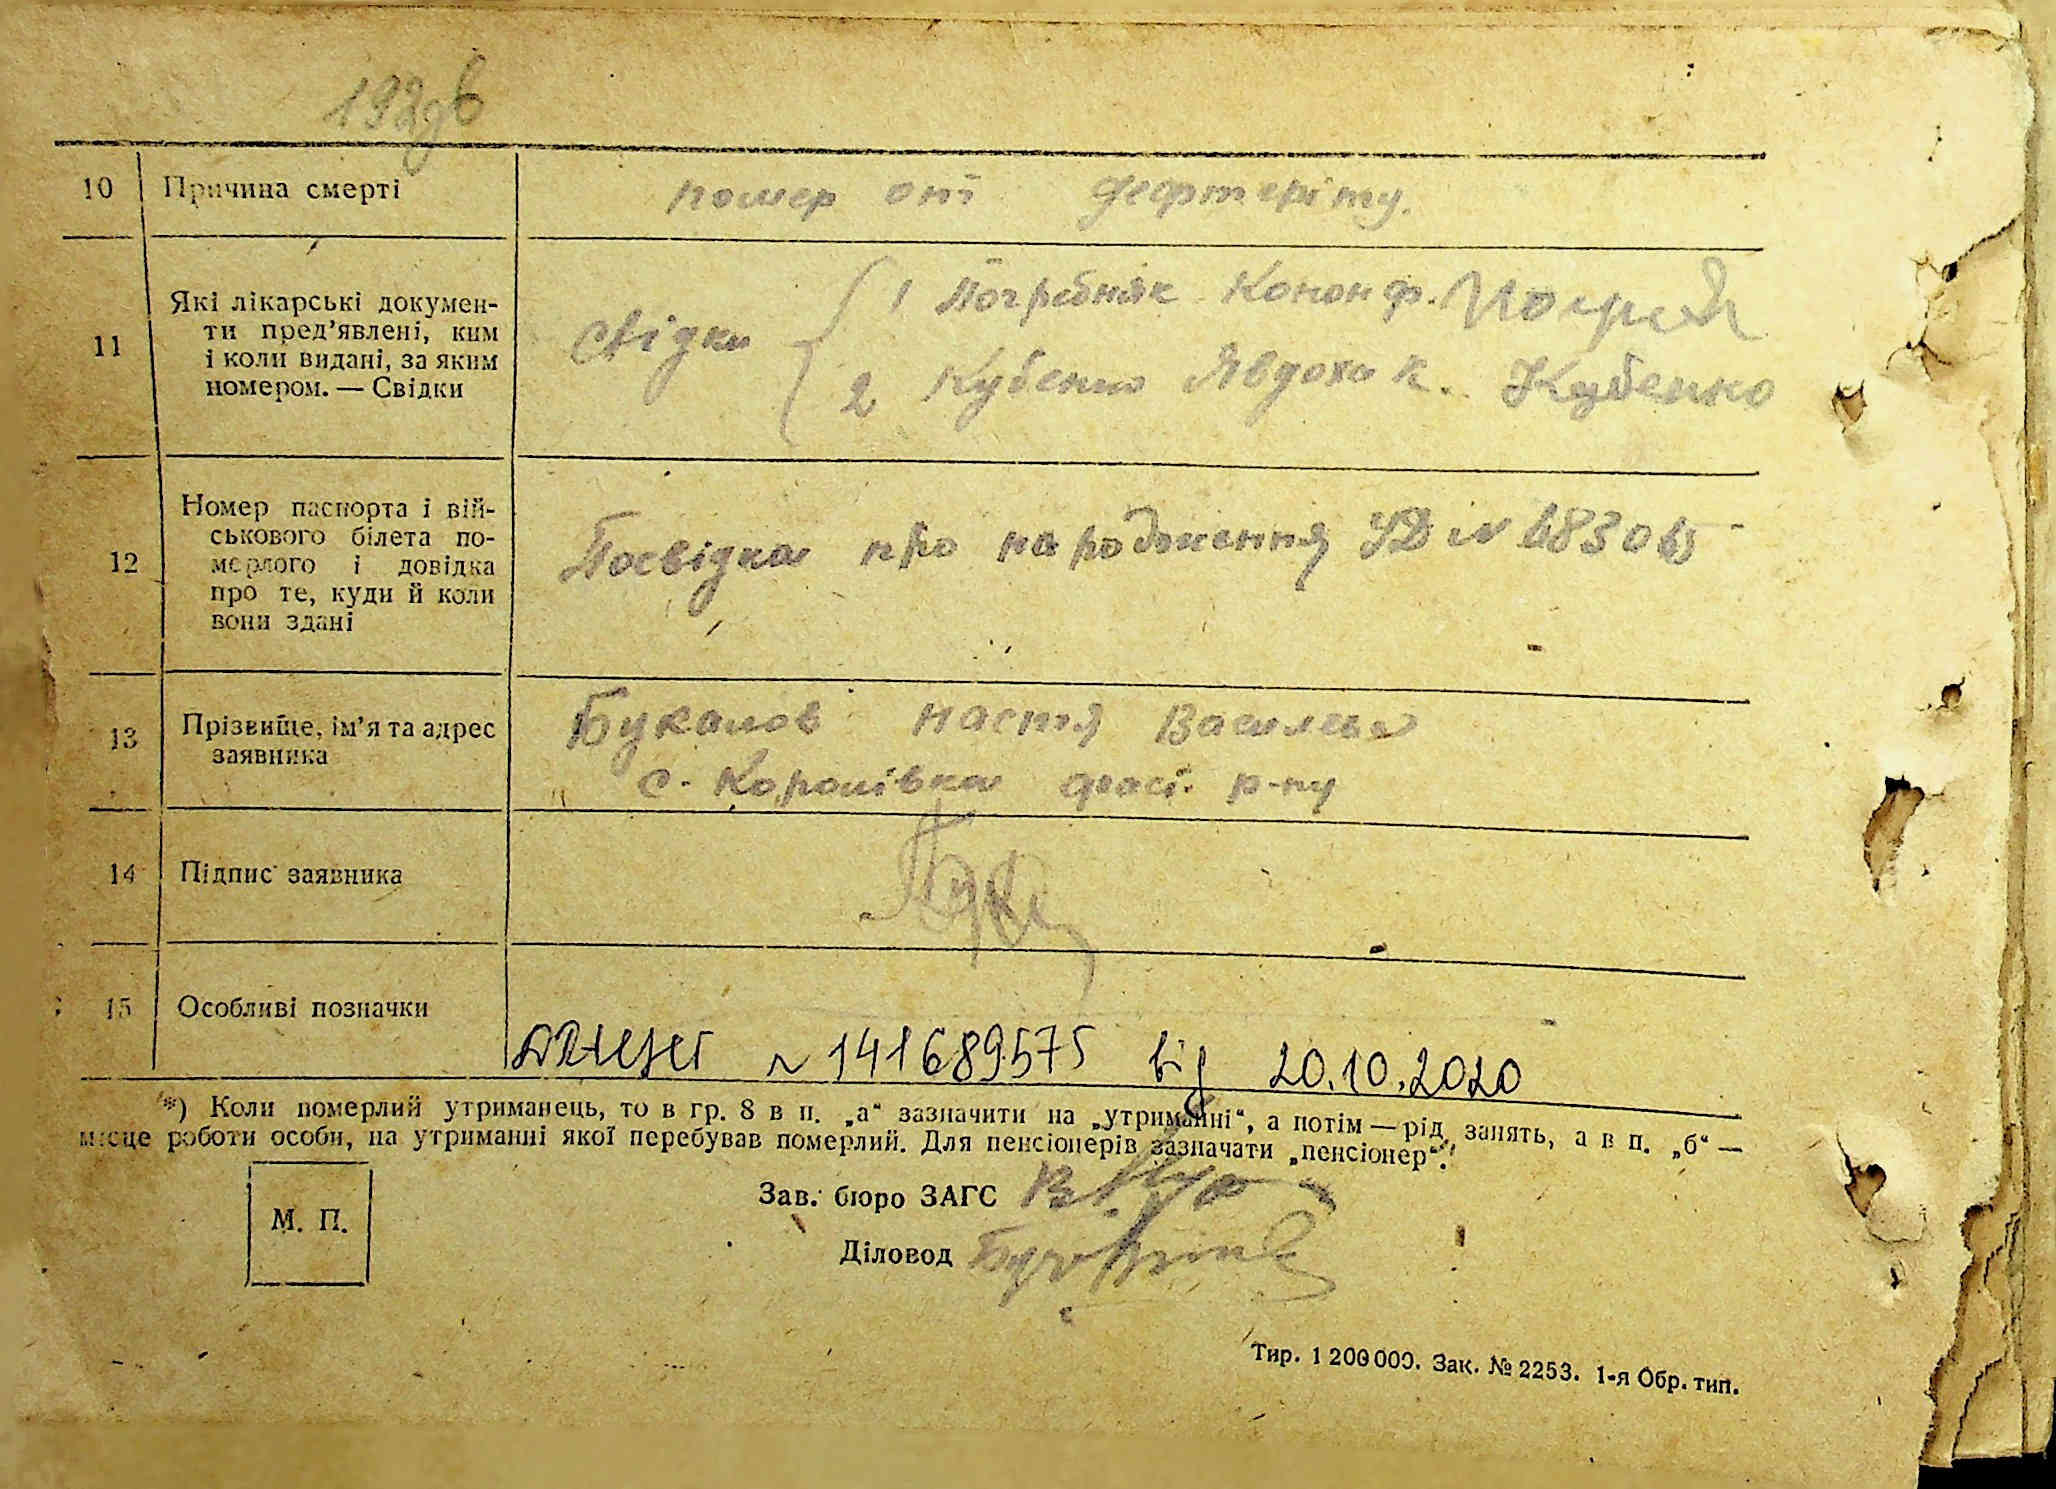 10 Причина смерті
помер от дефтеріту.
11 Які лікарські докумен-
ти пред’явлені, ким
і коли видані, за яким
номером. — Свідки
свідки
1 Погребняк Конон ф.
2 Кубенко Явдоха К. Кубенко
12 Номер паспорта і вій-
ськового білета по-
мерлого і довідка
про те, куди й коли
вони здані
Посвідка про народження УД №
13 Прізвище, ім’я та адрес
заявника
Настя
с. Королівка р-ну
14 Підпис заявника
15 Особливі позначки
№ 141689575 від 20.10.2020
*) Коли померлий утриманець, то в гр. 8 в п. „а“ зазначити на „утриманні“, а потім — рід занять, а в п. „б“ —
місце роботи особи, на утриманні якої перебував померлий. Для пенсіонерів зазначати „пенсіонер“.
М. П.
Зав. бюро ЗАГС
Діловод
Тир. 1 200 000. Зак. № 2253. 1-я Обр. тип.